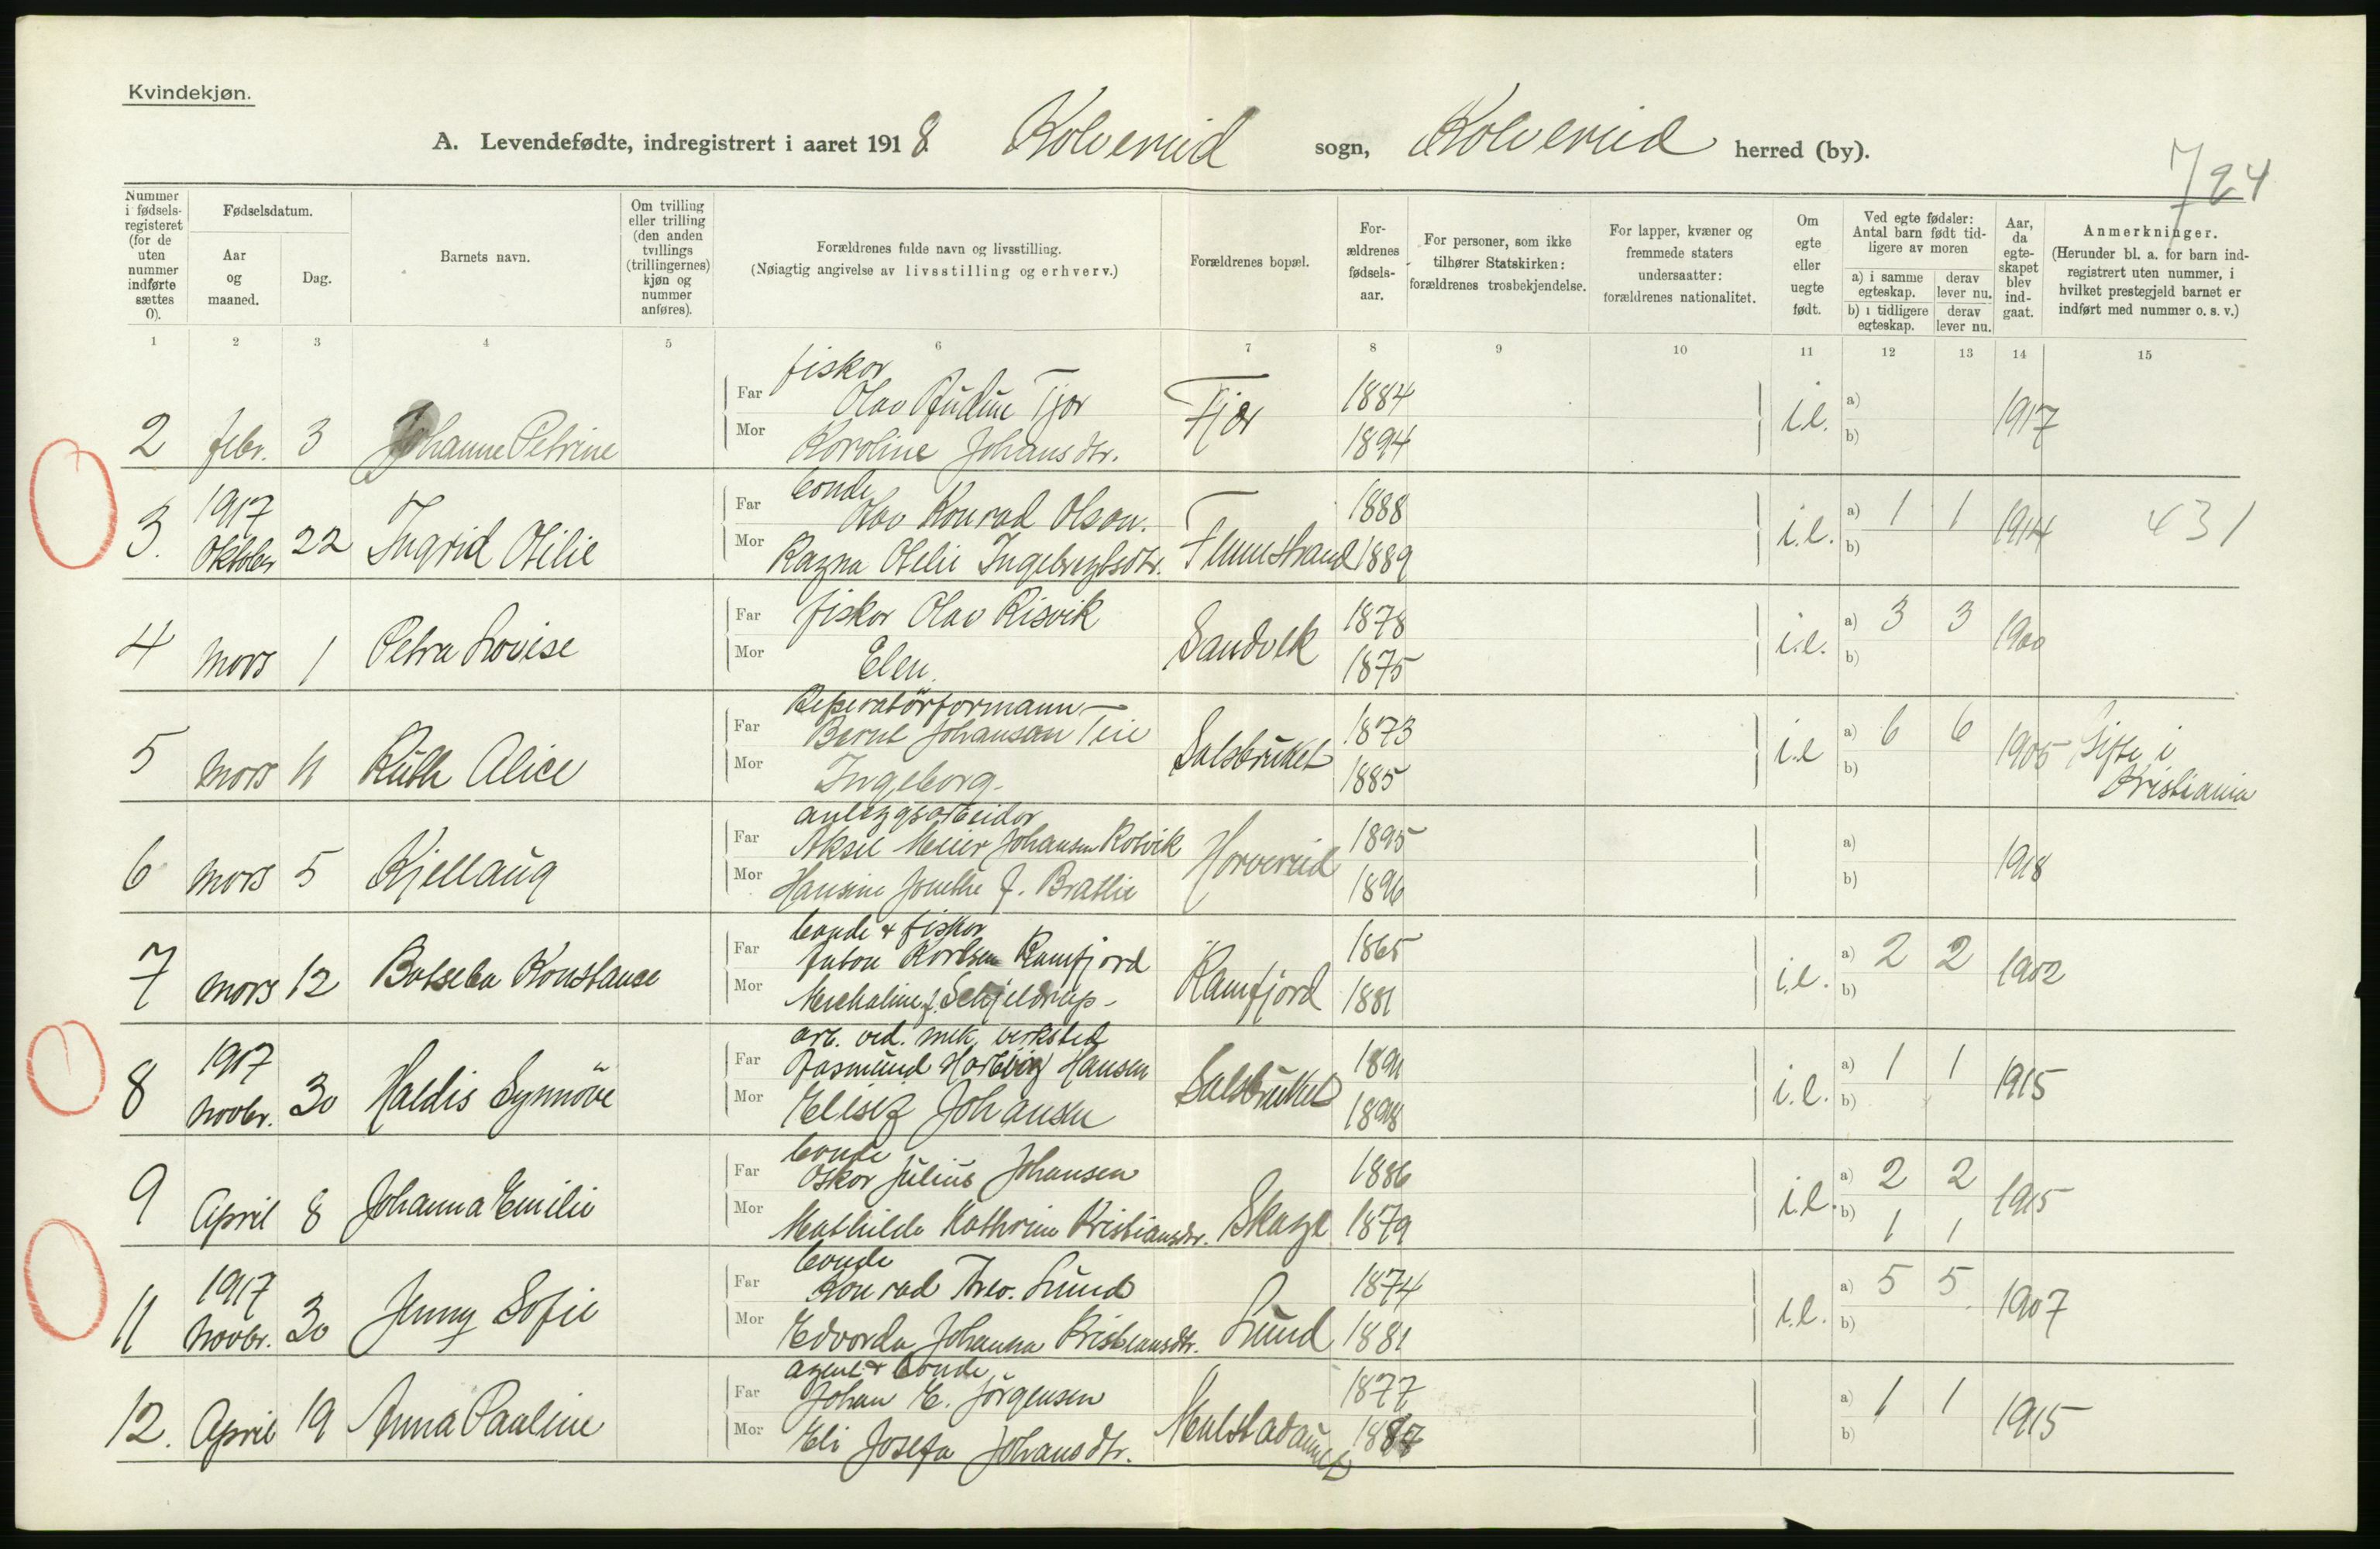 Kvindekjøn.
A. Levendefødte, indregistrert i aaret 1918. Kolvereid sogn, Kolvereid herred (by).
724
Nummer i fødsels-registeret (for de uten nummer indførte sættes 0).
Fødselsdatum.
Aar og maaned.
Dag.
Barnets navn.
Om tvilling eller trilling (den anden tvillings (trillingernes) kjøn og nummer anføres).
Forældrenes fulde navn og livsstilling.
(Nøiagtig angivelse av livsstilling og erhverv.)
Forældrenes bopæl.
For-ældrenes fødsels-aar.
For personer, som ikke tilhører Statskirken: forældrenes trosbekjendelse.
For lapper, kvæner og fremmede staters undersaatter: forældrenes nationalitet.
Om egte eller uegte født.
Ved egte fødsler: Antal barn født tid-ligere av moren
a) i samme egteskap. derav lever nu.
b) i tidligere egteskap. derav lever nu.
Aar, da egte-skapet blev ind-gaat.
Anmerkninger.
(Herunder bl. a. for barn ind-registrert uten nummer, i hvilket prestegjeld barnet er indført med nummer o. s. v.)
1 2 3 4 5 6 7 8 9 10 11 12 13 14 15
fiskor
Far Olav Tjør Tjør 1884 i.e. a) 1917
2 febr. 3 Johanne Petrine Mor Karoline Johansdtr. 1894 b)
1917 bonde
Far Olav Konrad Olson. 1888 i.e. a) 1 1 1914 431
3. Oktober 22 Ingrid Otilie Mor Ragna Otelie Ingebregtsdtr. 1889 b)
Far fiskor Olav Risvik Sandvik 1878 i.e. a) 3 3 1900
4 Mars 1 Petra Lovise Mor Elen. 1875 b)
Reperatörformann
Far Bernt Johanson Teie Salsbruket 1873 i.e a) 6 6 1905 Gifte i
5 Mars 11 Ruth Alice Mor Ingeborg. 1885 b) Kristiania
anleggsarbeidor
Far Aksel Meier Johansen Rosvik Horvereid 1895 a) 1918
6 Mars 5 Kjellaug Mor Hansine Jonethe f. Bratlie 1896 b)
bonde & fiskor
Far Anton Karlsen Ramfjord Ramfjord 1865 i.e. a) 2 2 1902
7 Mars 12 Batseba Konstanse Mor f. Schjeldrup- 1881 b)
1917 arb. ved. mek. verksted
Far Rasmund Hartvig Hansen Salsbruket 1891 i.e. a) 1 1 1915
8 Novbr. 30 Haldis Synnöve Mor Johansen 1898 b)
bonde
Far Oskar Julius Johansen 1886 i.e. a) 2 2 1915
9 April 8 Johanna Emilie Mor Mathilde Kathrine Kristiansdtr. Skage 1879 b) 1 1
1917 bonde
Far Konrad Theo. Lund 1874 i.e. a) 5 5 1907
11 Novbr. 30 Jenny Sofie Mor Edvarda Johanna Kristiansdtr. Lund 1881 b)
agent & bonde
Far Johan E. Jörgensen 1877 a) 1 1 1915
12. April 19 Anna Pauline Mor Eli Josefa Johansdtr. 1887 b)